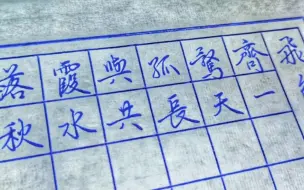 落霞與孤鶩齊飛
秋水共長天一